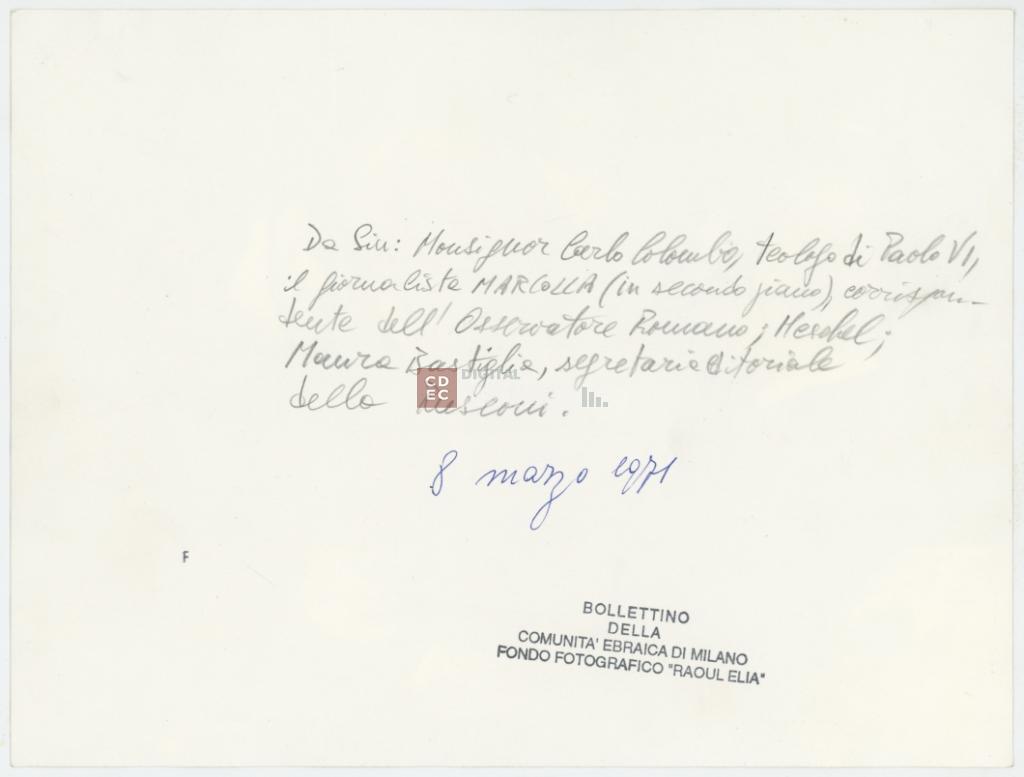 Da Sin: Monsignor Carlo Colombo, teologo di Paolo VI,
il giornalista MARCOLLA (in secondo piano), corrispon-
dente dell'Osservatore Romano; Heschel;
Maura Bastiglia, segretaria editoriale
della Rusconi.
CD
EC
DIGITAL
8 marzo 1971
F
BOLLETTINO
DELLA
COMUNITA' EBRAICA DI MILANO
FONDO FOTOGRAFICO "RAOUL ELIA"